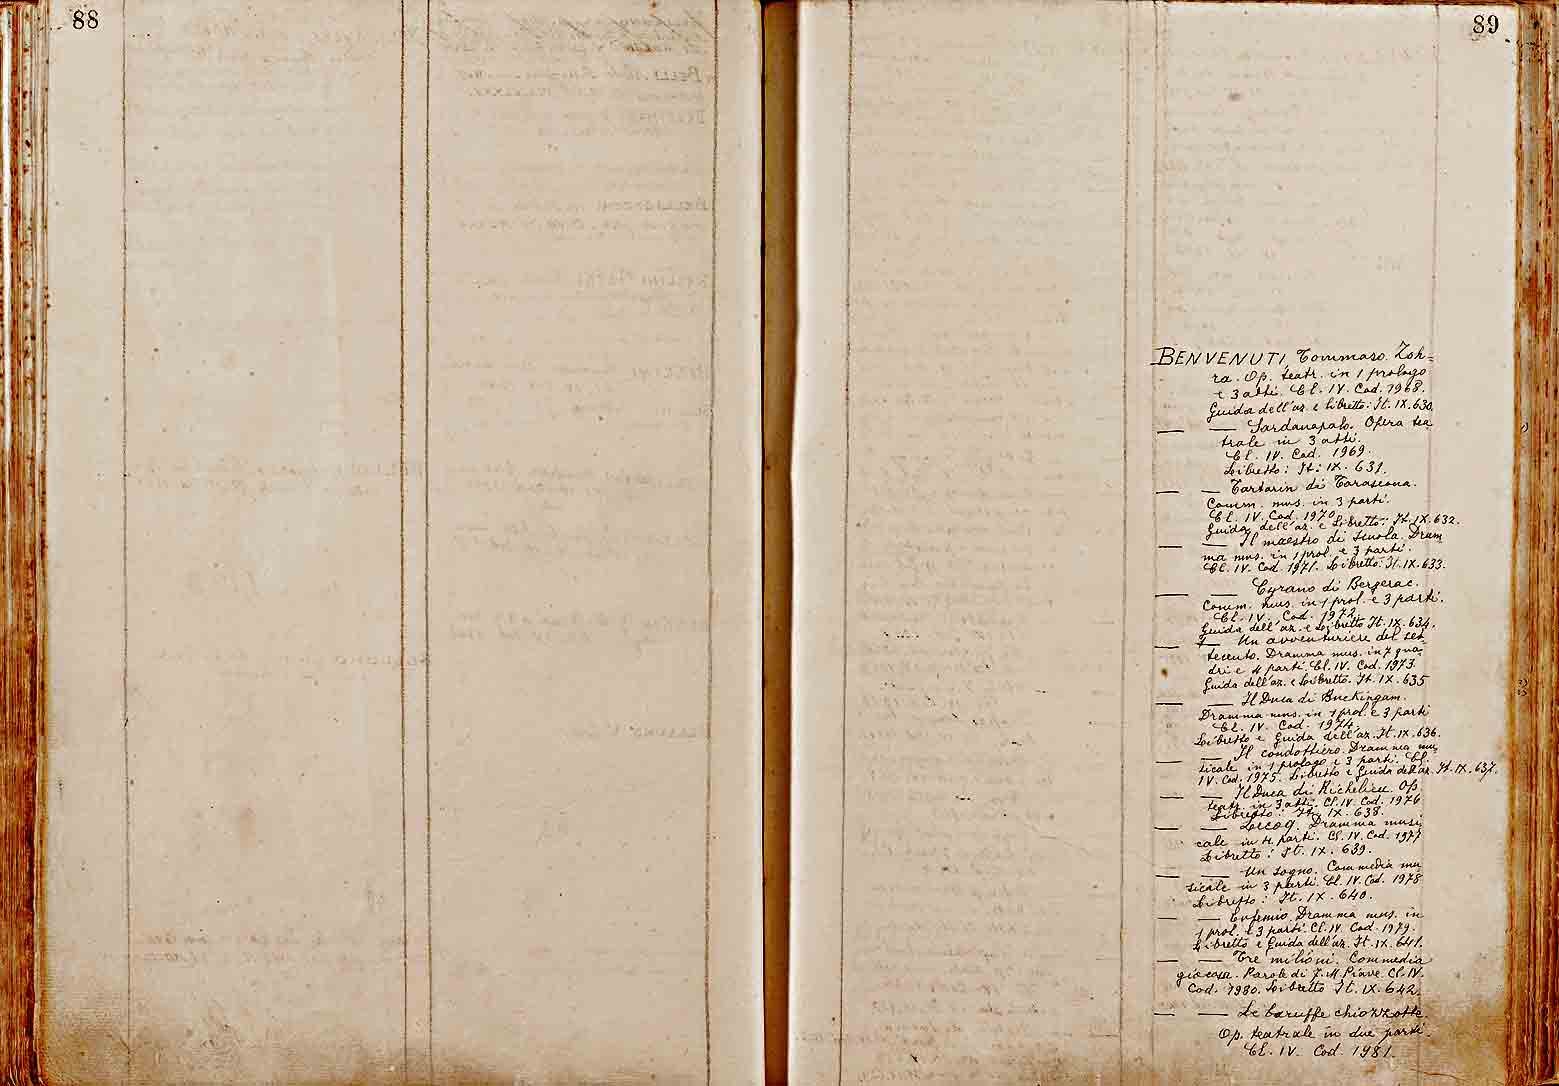 88
89
BENVENUTI, Tommaso. Zoh=
ra. Op. teatr. in 1 prologo
e 3 atti. Cl. IV. Cod. 1968.
Guida dell'az. e libretto: It. IX. 630.
— — Sardanapalo. Opera tea
trale in 3 atti.
Cl. IV. Cod. 1969.
Libretto: It: IX. 631.
— — Tartarin di Tarascona.
Comm. mus. in 3 parti.
Cl. IV. Cod. 1970
Guida dell'az. e Libretto: It. IX. 632.
— — Il maestro di scuola. Dram
ma mus. in 1 prol. e 3 parti.
Cl. IV. Cod. 1971. Libretto: It. IX. 633.
— — Cyrano di Bergerac.
Comm. mus. in 1 prol. e 3 parti.
Cl. IV. Cod. 1972.
Guida dell'az. e Libretto It. IX. 634.
— — Un avventuriere del set
tecento. Dramma mus. in 7 qua=
dri e 4 parti. Cl. IV. Cod. 1973
Guida dell'az. e Libretto. It. IX. 635
— — Il Duca di Buckingam.
Dramma mus. in 1 prol. e 3 parti
Cl. IV. Cod. 1974.
Libretto e Guida dell'az. It. IX. 636.
— — Il condottiero. Dramma mu
sicale in 1 prologo e 3 parti. Cl.
IV. Cod. 1975. Libretto e Guida dell'az. It. IX. 637.
— — Il Duca di Richelieu. Op.
teatr. in 3 atti. Cl. IV. Cod. 1976
Libretto: It. IX. 638.
— — Lecoq. Dramma musi
cale in 4 parti. Cl. IV. Cod. 1977
Libretto: It. IX. 639.
— — Un sogno. Commedia mu
sicale in 3 parti. Cl. IV. Cod. 1978
Libretto: It. IX. 640.
— — Eufemio. Dramma mus. in
1 prol. e 3 parti. Cl. IV. Cod. 1979.
Libretto e Guida dell'az. It. IX. 641.
— — Tre milioni. Commedia
giocosa. Parole di F. M. Piave. Cl. IV.
Cod. 1980. Libretto It. IX. 642.
— — Le baruffe chiozzotte.
Op. teatrale in due parti.
Cl. IV. Cod. 1981.